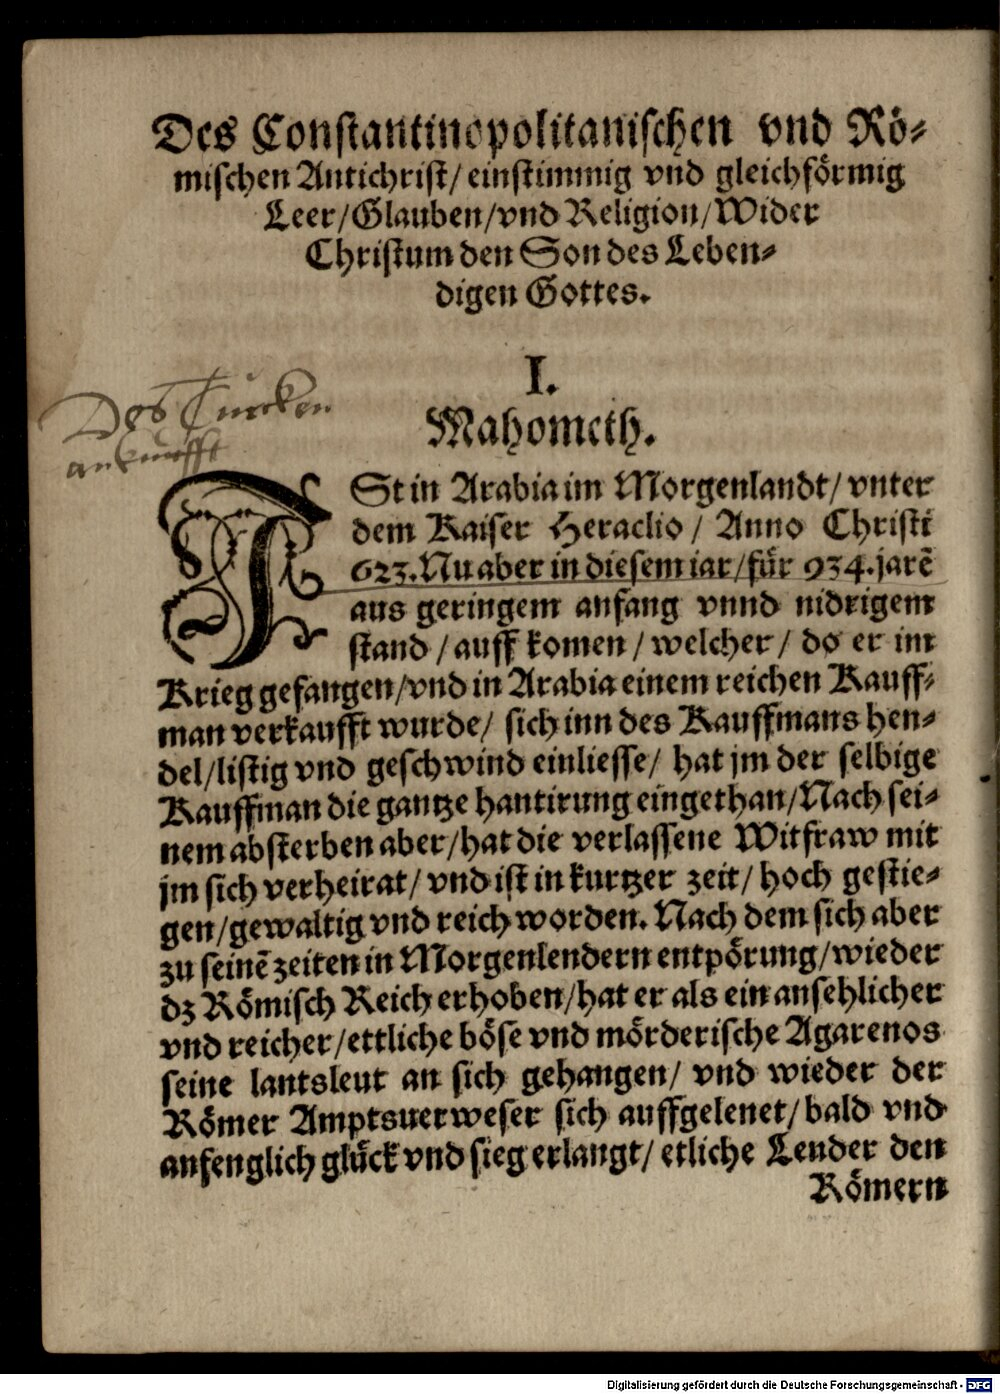 Des Constantinopolitanischen vnd Rö⸗
mischen Antichrist/ einstimmig vnd gleichförmig
Leer/Glauben/vnd Religion/Wider
Christum den Son des Leben⸗
digen Gottes.
I.
Mahometh.
Des Turcken
ankunfft
ISt in Arabia im Morgenlandt/ vnter
dem Kaiser Heraclio / Anno Christi
623. Nu aber in diesem iar/für 934. jarẽ
aus geringem anfang vnnd nidrigem
stand /auff komen / welcher / do er im
Krieg gefangen/vnd in Arabia einem reichen Kauff⸗
man verkaufft wurde/ sich inn des Kauffmans hen⸗
del/listig vnd geschwind einliesse/ hat jm der selbige
Kauffman die gantze hantirung eingethan/Nach sei⸗
nem absterben aber/hat die verlassene Witfraw mit
jm sich verheirat/ vnd ist in kurtzer zeit/ hoch gestie⸗
gen/gewaltig vnd reich worden. Nach dem sich aber
zu seinẽ zeiten in Morgenlendern entpörung/wieder
dz Römisch Reich erhoben/hat er als ein ansehlicher
vnd reicher/ettliche böse vnd mörderische Agarenos
seine lantsleut an sich gehangen/ vnd wieder der
Römer Amptsuerweser sich auffgelenet/ bald vnd
anfenglich glück vnd sieg erlangt/ etliche Lender den
Römern
Digitalisierung gefördert durch die Deutsche Forschungsgemeinschaft - DFG